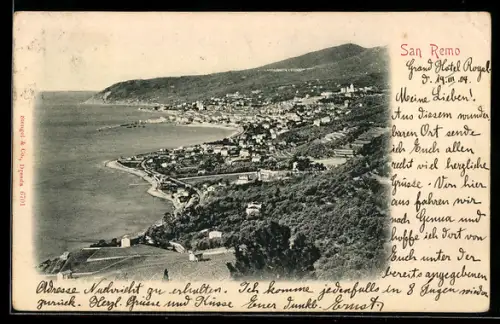 San Remo
Grand Hôtel Royal
d. 19.III.04.
Meine Lieben!
Aus diesem wunder
baren Ort sende
ich Euch allen
recht viel herzliche
Grüsse. Von hier
aus fahren wir
nach Genua und
hoffe ich dort von
Euch unter der
bereits angegebenen
Adresse Nachricht zu erhalten. Ich komme jedenfalls in 8 Tagen wieder
zurück. Herzl. Grüsse und Küsse Euer dankb. Ernst.
Stengel & Co., Dresde 6701